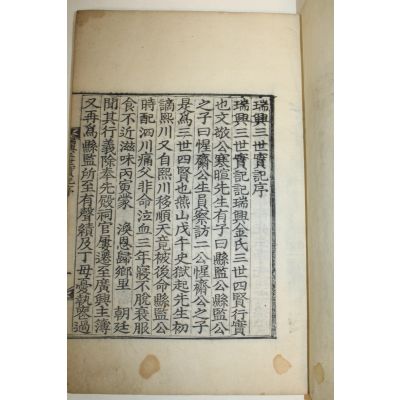 瑞興三世實記序
瑞興三世實記記瑞興金氏三世四賢行實
也文敬公寒暄先生有子曰縣監公縣監公
之子曰惺齋公生員察訪二公惺齋公之子
是爲三世四賢也燕山戊午史獄起先生初
謫熙川又自熙川移順天竟被後命縣監公
時配泗川痛父非命泣血三年寢不脫衰服
食不近滋味丙寅蒙 渙恩歸鄕里 朝廷
聞其行義除奉先殿祠官屢遷至廣興主簿
又再爲縣監所至有聲績及丁母憂執喪過